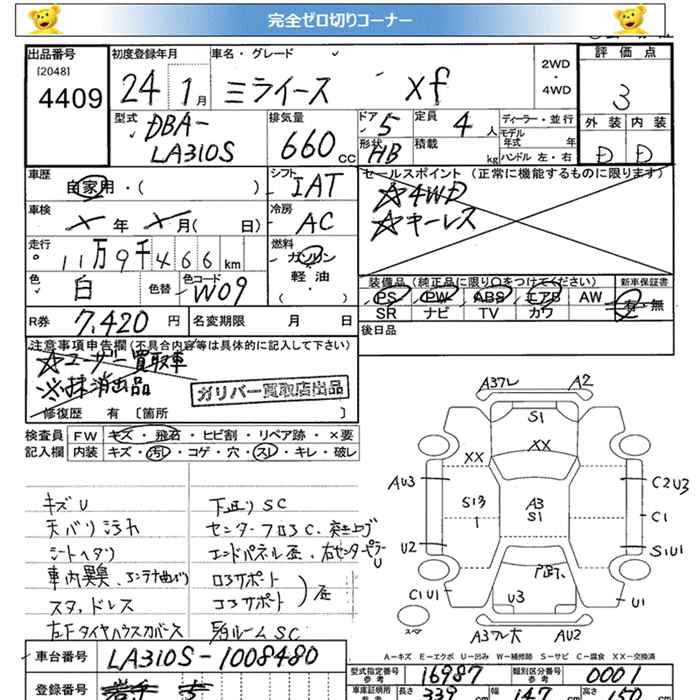 完全ゼロ切りコーナー
出品番号 初度登録年月 車名・グレード 2WD・4WD 評価点
[2048]
4409 24 1月 ミライース xf 3
型式 DBA-LA310S 排気量 660cc ドア 5 定員 4人 ディーラー・並行
形状 HB 積載 kg モデル年式 年 ハンドル 左・右
外装 内装
D D
車歴 自家用・( ) シフト IAT セールスポイント (正常に機能するものに限ります)
☆4WD
☆キーレス
車検 X年X月( 日) 冷房 AC
走行 11万9千466km 燃料 ガソリン
軽・油
( )
色 白 色替 色コード W09
装備品 (純正品に限り○をつけてください) 新車保証書
PS PW ABS エアB AW 有・無
SR ナビ TV カワ
R券 7,420円 名変期限 月 日 後日品
注意事項申告欄 (不具合内容等は具体的に記入して下さい)
☆ユーザー買取車
※抹消出品
ガリバー買取店出品
修復歴 有 〔箇所 〕
検査員 FW キズ・飛石・ヒビ割・リペア跡・×要
記入欄 内装 キズ・汚レ・コゲ・穴・スレ・キレ・破レ
キズU 下廻りSC
天バリ汚れ センターフロアC、突き上ゲ
シートヘタリ エンドパネル歪、右センターピラーU
車内異臭、アンテナ曲り ロアサポート
スタッドレス コアサポート 歪
左Fタイヤハウスカバース ルームSC
A3フレ A2
S1
XX
XX
AU3 S13 A3 C2U3
1 S1 C1
U2 S1U1
C1U1 U3 U1
スペア
A3フレ大 AU2
A－キズ E－エクボ U－凹み W－補修跡 S－サビ C－腐食 XX－交換済
車台番号 LA310S-1008480
型式指定番号 参考 16987 類別区分番号 参考 0001
登録番号 岩手
車庫証明用 参考 長さ 339cm 幅 147cm 高さ 150cm